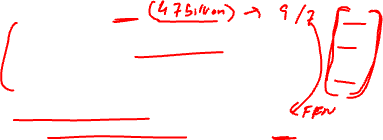 (47 Billion) → 9/2
FFN